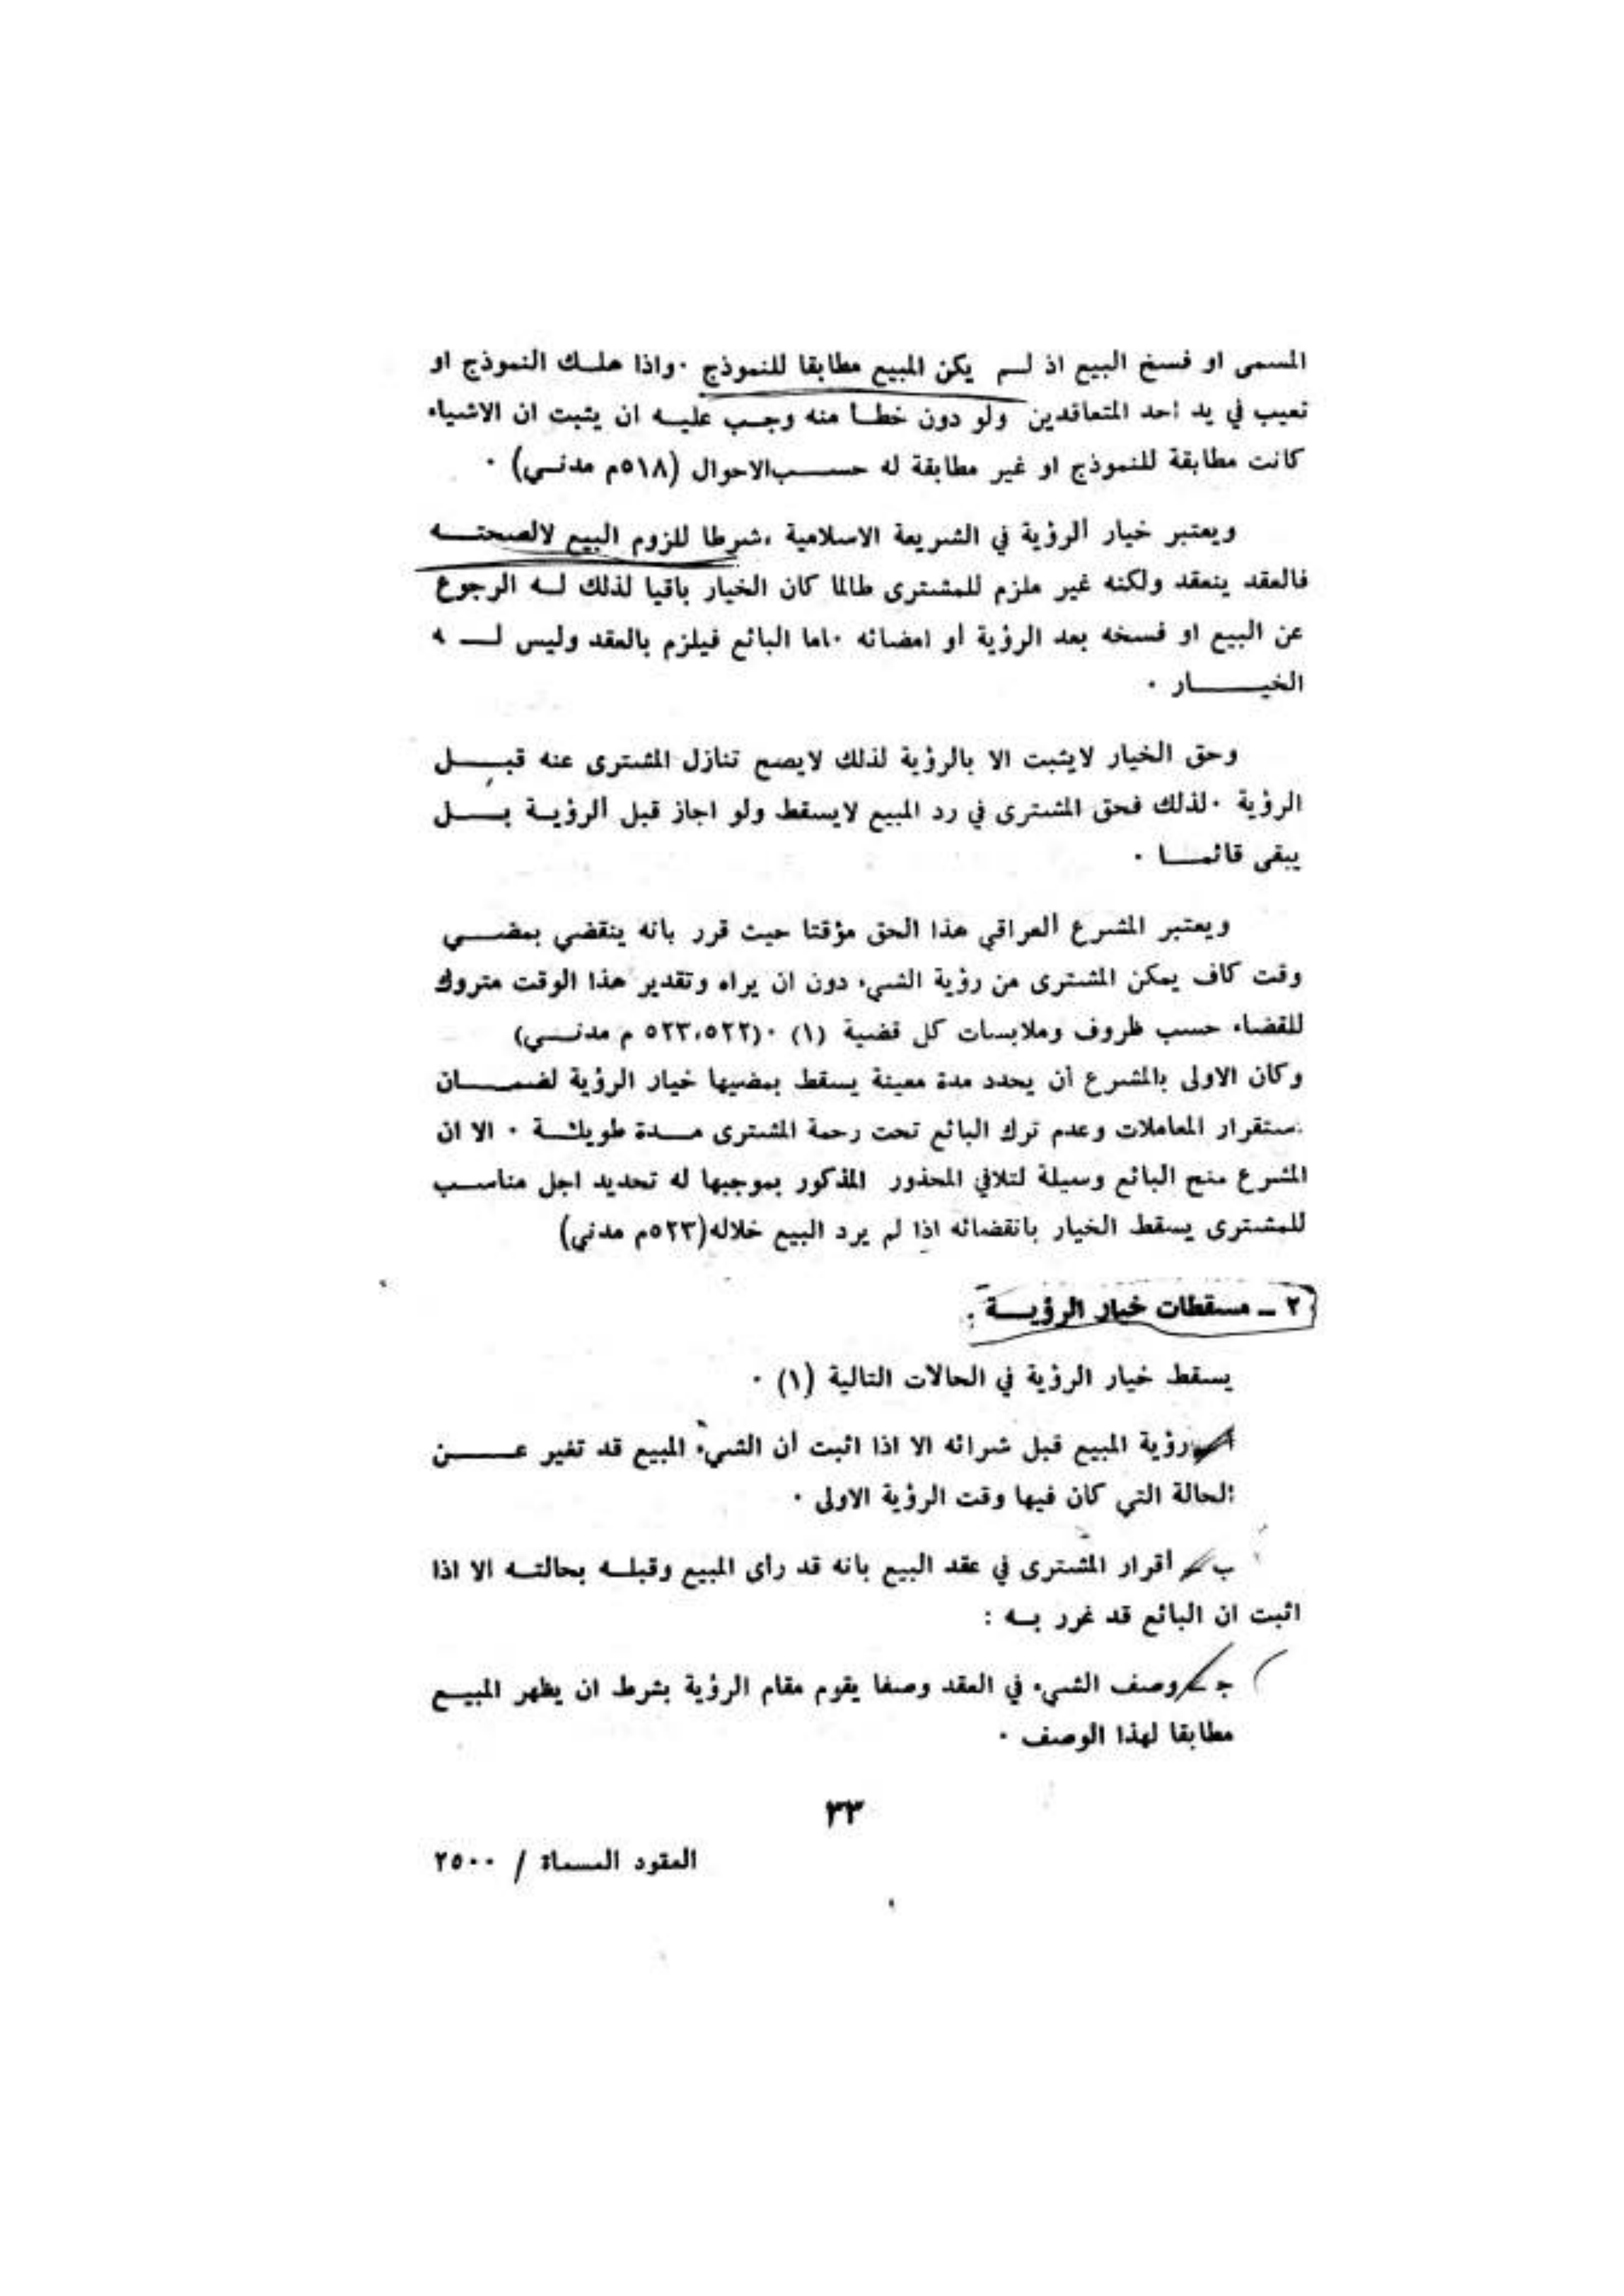 المسمى او فسخ البيع اذ لم يكن المبيع مطابقا للنموذج ٠واذا هلك النموذج او
تعيب في يد احد المتعاقدين ولو دون خطأ منه وجب عليه ان يثبت ان الاشياء
كانت مطابقة للنموذج او غير مطابقة له حسب الاحوال (٥١٨م مدني) ٠
ويعتبر خيار الرؤية في الشريعة الاسلامية ،شرطا للزوم البيع لالصحته
فالعقد ينعقد ولكنه غير ملزم للمشترى طالما كان الخيار باقيا لذلك له الرجوع
عن البيع او فسخه بعد الرؤية أو امضائه ٠اما البائع فيلزم بالعقد وليس له
الخيار ٠
وحق الخيار لايثبت الا بالرؤية لذلك لايصح تنازل المشترى عنه قبل
الرؤية ٠لذلك فحق المشترى في رد المبيع لايسقط ولو اجاز قبل الرؤية بل
يبقى قائما ٠
ويعتبر المشرع العراقي هذا الحق مؤقتا حيث قرر بانه ينقضي بمضي
وقت كاف يمكن المشترى من رؤية الشيء دون ان يراه وتقدير هذا الوقت متروك
للقضاء حسب ظروف وملابسات كل قضية (١) ٠(٥٢٣،٥٢٢ م مدني)
وكان الاولى بالمشرع أن يحدد مدة معينة يسقط بمضيها خيار الرؤية لضمان
ستقرار المعاملات وعدم ترك البائع تحت رحمة المشترى مدة طويلة ٠ الا ان
المشرع منح البائع وسيلة لتلافي المحذور المذكور بموجبها له تحديد اجل مناسب
للمشترى يسقط الخيار بانقضائه اذا لم يرد البيع خلاله(٥٢٣م مدني)
٢ ــ مسقطات خيار الرؤية :
يسقط خيار الرؤية في الحالات التالية (١) ٠
أ ــ رؤية المبيع قبل شرائه الا اذا اثبت أن الشيء المبيع قد تغير عن
الحالة التي كان فيها وقت الرؤية الاولى ٠
ب ــ أقرار المشترى في عقد البيع بانه قد رأى المبيع وقبله بحالته الا اذا
اثبت ان البائع قد غرر به :
جـ ــ وصف الشيء في العقد وصفا يقوم مقام الرؤية بشرط ان يظهر المبيع
مطابقا لهذا الوصف ٠
٣٣
العقود المسماة / ٢٥٠٠